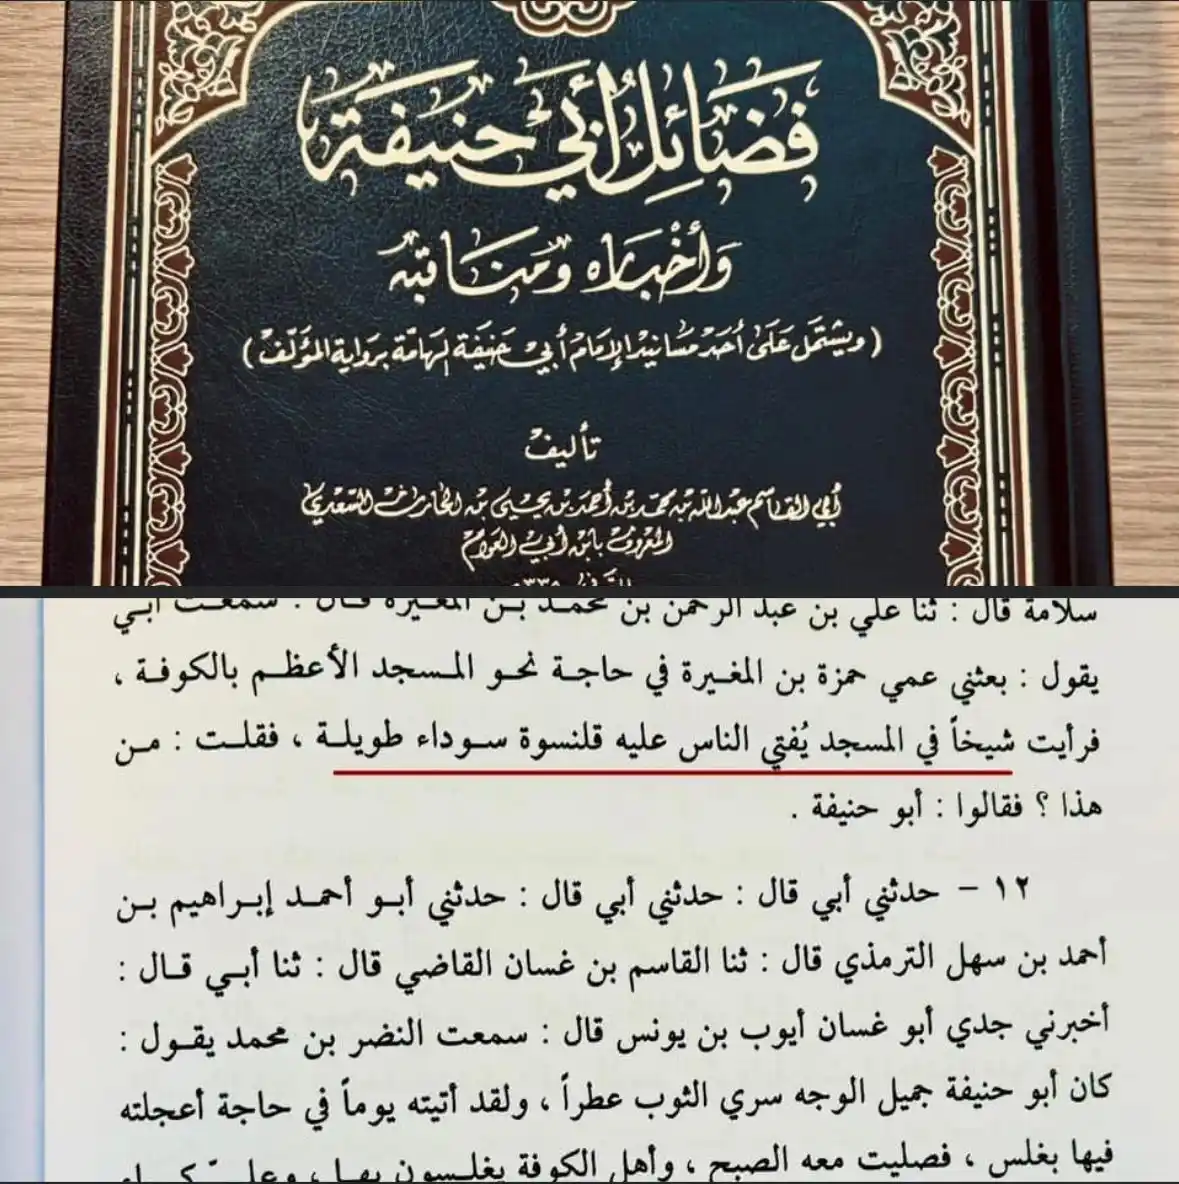 فَضَائِل أَبِي حَنِيفَة
وَأَخْبَارُه وَمَنَاقِبُه
( ويشتمل عَلَى أَحَد مسَانيد الإِمَام أَبي حَنيفَة الهَامَّة برواية المؤلّف )
تأليف
أبي القاسم عبد الله بن محمد بن أحمد بن يحيى بن الحارث السعدي
المعروف بابن أبي العوام
سلامة قال : ثنا علي بن عبد الرحمن بن محمد بن المغيرة قال : سمعت أبي
يقول : بعثني عمي حمزة بن المغيرة في حاجة نحو المسجد الأعظم بالكوفة ،
فرأيت شيخاً في المسجد يُفتي الناس عليه قلنسوة سوداء طويلة ، فقلت : من
هذا ؟ فقالوا : أبو حنيفة .
١٢ - حدثني أبي قال : حدثني أبي قال : حدثني أبو أحمد إبراهيم بن
أحمد بن سهل الترمذي قال : ثنا القاسم بن غسان القاضي قال : ثنا أبي قال :
أخبرني جدي أبو غسان أيوب بن يونس قال : سمعت النضر بن محمد يقول :
كان أبو حنيفة جميل الوجه سري الثوب عطراً ، ولقد أتيته يوماً في حاجة أعجلته
فيها بغلس ، فصليت معه الصبح ، وأهل الكوفة يغلسون بها ،